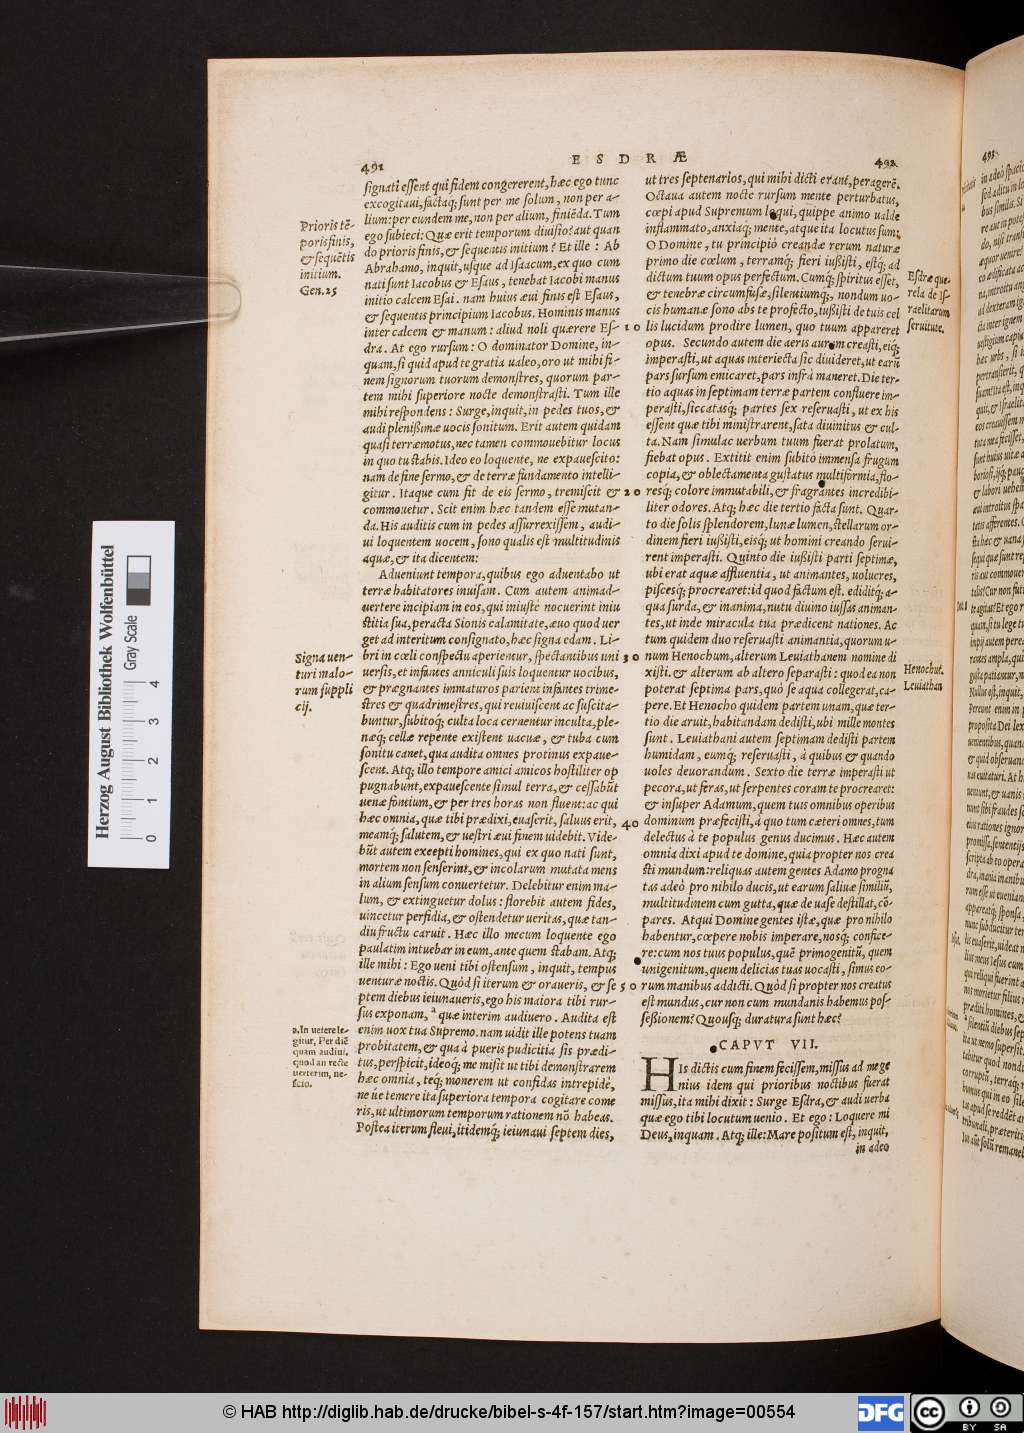 ESDRÆ
491
signati essent qui fidem congererent, hæc ego tunc
excogitaui, factaq; sunt per me solum, non per a-
lium: per eundem me, non per alium, finiēda. Tum
ego subieci: Quæ erit temporum diuisio? aut quan
do prioris finis, & sequentis initium? Et ille: Ab
Abrahamo, inquit, usque ad Isaacum, ex quo cum
nati sunt Iacobus & Esaus, tenebat Iacobi manus
initio calcem Esai. nam huius æui finis est Esaus,
& sequentis principium Iacobus. Hominis manus
inter calcem & manum: aliud noli quærere Es-
dra. At ego rursum: O dominator Domine, in-
quam, si quid apud te gratia ualeo, oro ut mihi fi-
nem signorum tuorum demonstres, quorum par-
tem mihi superiore nocte demonstrasti. Tum ille
mihi respondens: Surge, inquit, in pedes tuos, &
audi plenißimæ uocis sonitum. Erit autem quidam
quasi terræmotus, nec tamen commouebitur locus
in quo tu stabis. Ideo eo loquente, ne expauescito:
nam de fine sermo, & de terræ fundamento intelli-
gitur. Itaque cum fit de eis sermo, tremiscit &
commouetur. Scit enim hæc tandem esse mutan-
da. His auditis cum in pedes assurrexissem, audi-
ui loquentem uocem, sono qualis est multitudinis
aquæ, & ita dicentem:
Adueniunt tempora, quibus ego aduentabo ut
terræ habitatores inuisam. Cum autem animad-
uertere incipiam in eos, qui iniustè nocuerint iniu
stitia sua, peracta Sionis calamitate, æuo quod uer
get ad interitum consignato, hæc signa edam. Li-
bri in cœli conspectu aperientur, spectantibus uni
uersis, et infantes anniculi suis loquentur uocibus,
& prægnantes immaturos parient infantes trime-
stres & quadrimestres, qui reuiuiscent ac suscita-
buntur, subitoq; culta loca cernentur inculta, ple-
næq; cellæ repente existent uacuæ, & tuba cum
sonitu canet, qua audita omnes protinus expaue-
scent. Atq; illo tempore amici amicos hostiliter op
pugnabunt, expauescente simul terra, & cessabūt
uenæ fontium, & per tres horas non fluent: ac qui
hæc omnia, quæ tibi prædixi, euaserit, saluus erit,
meamq; salutem, & uestri æui finem uidebit. Vide-
būt autem excepti homines, qui ex quo nati sunt,
mortem non senserint, & incolarum mutata mens
in alium sensum conuertetur. Delebitur enim ma-
lum, & extinguetur dolus: florebit autem fides,
uincetur perfidia, & ostendetur ueritas, quæ tan-
diu fructu caruit. Hæc illo mecum loquente ego
paulatim intuebar in eum, ante quem stabam. Atq;
ille mihi: Ego ueni tibi ostensum, inquit, tempus
uenturæ noctis. Quòd si iterum & oraueris, & se
ptem diebus ieiunaueris, ego his maiora tibi rur-
sus exponam, ª quæ interim audiuero. Audita est
enim uox tua Supremo. nam uidit ille potens tuam
probitatem, & qua à pueris pudicitia sis prædi-
tus, perspicit, ideoq; me misit ut tibi demonstrarem
hæc omnia, teq; monerem ut confidas intrepidè,
ne úe temere ita superiora tempora cogitare come
ris, ut ultimorum temporum rationem nō habeas.
Postea iterum fleui, itidemq; ieiunaui septem dies,
Prioris tē-
poris finis,
& sequētis
initium.
Gen. 25
Signa uen-
turi malo-
rum suppli
cij.
a. In uetere le-
gitur, Per diē
quam audiui,
quod an recte
uerterim, ne-
scio.
10
20
30
40
50
492
ut tres septenarios, qui mihi dicti erant, peragerē.
Octaua autem nocte rursum mente perturbatus,
cœpi apud Supremum loqui, quippe animo ualde
inflammato, anxiaq; mente, atque ita locutus sum:
O Domine, tu principiò creandæ rerum naturæ
primo die cœlum, terramq; fieri iußisti, estq; ad
dictum tuum opus perfectum. Cumq; spiritus esset,
& tenebræ circumfusæ, silentiumq;, nondum uo-
cis humanæ sono abs te profecto, iußisti de tuis cel
lis lucidum prodire lumen, quo tuum appareret
opus. Secundo autem die aeris auram creasti, eiq;
imperasti, ut aquas interiecta sic diuideret, ut earū
pars sursum emicaret, pars infrà maneret. Die ter-
tio aquas in septimam terræ partem confluere im-
perasti, siccatasq; partes sex reseruasti, ut ex his
essent quæ tibi ministrarent, sata diuinitus & cul-
ta. Nam simulac uerbum tuum fuerat prolatum,
fiebat opus. Extitit enim subitò immensa frugum
copia, & oblectamenta gustatus multiformia, flo-
resq; colore immutabili, & fragrantes incredibi-
liter odores. Atq; hæc die tertio facta sunt. Quar-
to die solis splendorem, lunæ lumen, stellarum or-
dinem fieri iußisti, eisq; ut homini creando serui-
rent imperasti. Quinto die iußisti parti septimæ,
ubi erat aquæ affluentia, ut animantes, uolucres,
piscesq; procrearet: id quod factum est. ediditq; a-
qua surda, & inanima, nutu diuino iussas animan-
tes, ut inde miracula tua prædicent nationes. Ac
tum quidem duo reseruasti animantia, quorum u-
num Henochum, alterum Leuiathanem nomine di
xisti. & alterum ab altero separasti: quod ea non
poterat septima pars, quò se aqua collegerat, ca-
pere. Et Henocho quidem partem unam, quæ ter-
tio die aruit, habitandam dedisti, ubi mille montes
sunt. Leuiathani autem septimam dedisti partem
humidam, eumq; reseruasti, à quibus & quando
uoles deuorandum. Sexto die terræ imperasti ut
pecora, ut feras, ut serpentes coram te procrearet:
& insuper Adamum, quem tuis omnibus operibus
dominum præfecisti, à quo tum cæteri omnes, tum
delectus à te populus genus ducimus. Hæc autem
omnia dixi apud te domine, quia propter nos crea
sti mundum: reliquas autem gentes Adamo progna
tas adeò pro nihilo ducis, ut earum saliuæ similiū,
multitudinem cum gutta, quæ de uase destillat, cō-
pares. Atqui Domine gentes istæ, quæ pro nihilo
habentur, cœpere nobis imperare, nosq; confice-
re: cum nos tuus populus, quē primogenitū, quem
unigenitum, quem delicias tuas uocasti, simus eo-
rum manibus addicti. Quòd si propter nos creatus
est mundus, cur non cum mundanis habemus pos-
seßionem? Quousq; duratura sunt hæc?
CAPVT VII.
HIs dictis cum finem fecissem, missus ad me ge
nius idem qui prioribus noctibus fuerat
missus, ita mihi dixit: Surge Esdra, & audi uerba
quæ ego tibi locutum uenio. Et ego: Loquere mi
Deus, inquam. Atq; ille: Mare positum est, inquit,
in adeo
Esdræ que-
rela de Is-
raelitarum
seruitute.
Henochus.
Leuiathan
493
Herzog August Bibliothek Wolfenbüttel
Gray Scale
0 1 2 3 4
© HAB http://diglib.hab.de/drucke/bibel-s-4f-157/start.htm?image=00554
DFG
cc BY SA